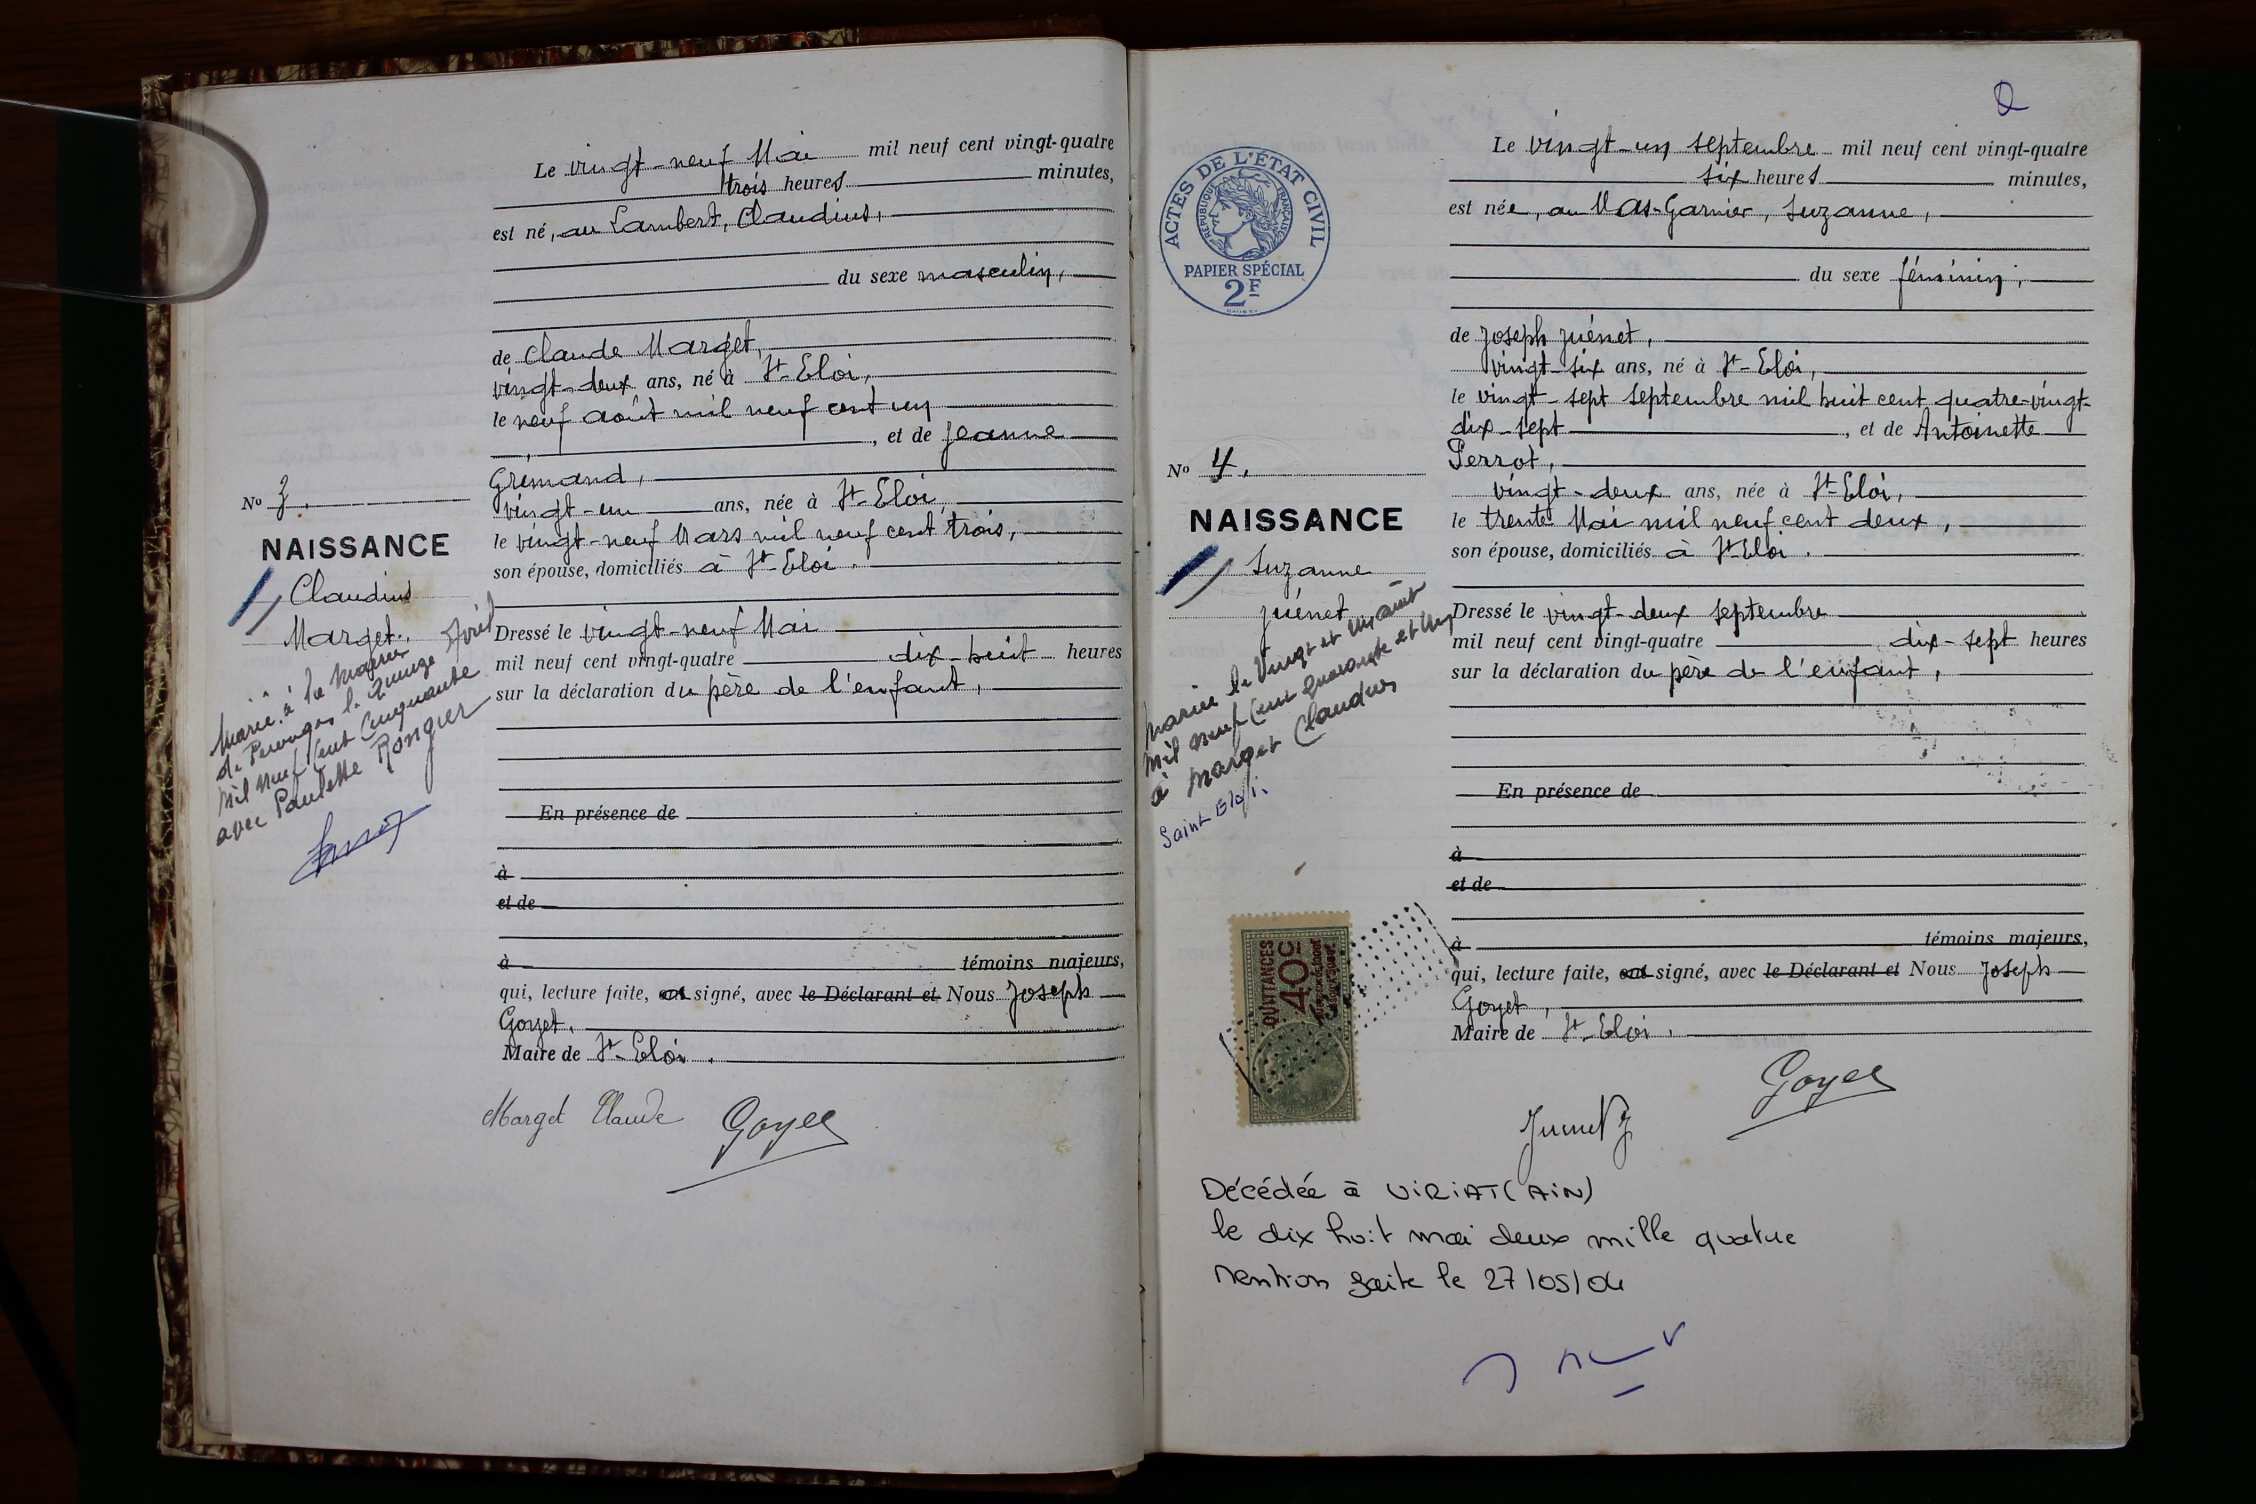 Le vingt-neuf Mai mil neuf cent vingt-quatre
trois heures minutes,
est né, au Lambert, Claudius,
du sexe masculin,
de Claude Marget,
vingt-deux ans, né à St-Eloi,
le neuf août mil neuf cent un
, et de Jeanne
Gremand,
vingt-un ans, née à St-Eloi,
le vingt-neuf Mars mil neuf cent trois,
son épouse, domiciliés à St-Eloi.
Dressé le vingt-neuf Mai
mil neuf cent vingt-quatre dix-huit heures
sur la déclaration du père de l'enfant,
En présence de
à
et de
à témoins majeurs,
qui, lecture faite, ont signé, avec le Déclarant et Nous Joseph
Goyet,
Maire de St-Eloi.
Marget Claude Goyet
No 3.
NAISSANCE
Claudius
Marget.
Marié à la Mairie
de Perouges le Quinze Avril
mil neuf Cent Cinquante
avec Paulette Rongier
2
ACTES DE L'ÉTAT CIVIL
RÉPUBLIQUE FRANÇAISE
PAPIER SPÉCIAL
2F
Le vingt-un septembre mil neuf cent vingt-quatre
six heures minutes,
est née, au Mas-Garnier, Suzanne,
du sexe féminin,
de Joseph Juénet,
vingt-six ans, né à St-Eloi,
le vingt-sept septembre mil huit cent quatre-vingt-
dix-sept , et de Antoinette
Perrot,
vingt-deux ans, née à St-Eloi,
le trente Mai mil neuf cent deux,
son épouse, domiciliés à St-Eloi.
Dressé le vingt-deux septembre
mil neuf cent vingt-quatre dix-sept heures
sur la déclaration du père de l'enfant,
En présence de
à
et de
à témoins majeurs,
qui, lecture faite, ont signé, avec le Déclarant et Nous Joseph
Goyet,
Maire de St-Eloi.
Goyet
No 4.
NAISSANCE
Suzanne
Juénet
Mariée le Vingt et un août
mil neuf Cent quarante et un
à Marget Claudius
Saint Eloi.
QUITTANCES
40c
Décédée à VIRIAT (AIN)
le dix huit mai deux mille quatre
mention faite le 27/05/04